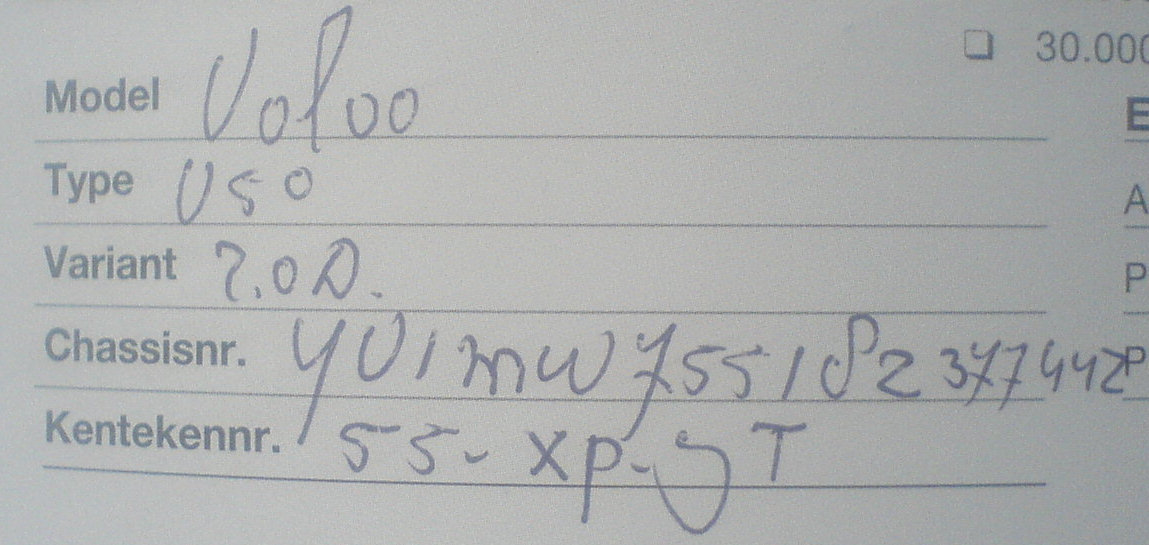 30.000
Model Volvo
E
Type V50
A
Variant 2.0D.
P
Chassisnr. YV1MW755182377442
P
Kentekennr. 55-XP-JT